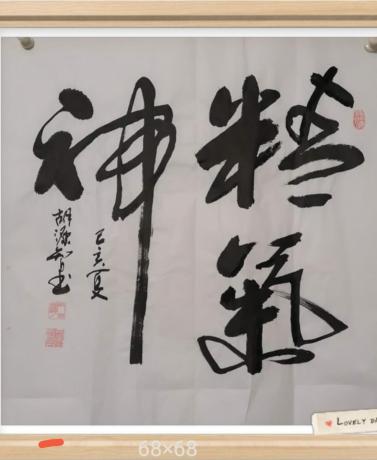 精氣
神
己亥夏
胡源智書
LOVELY DA
68×68